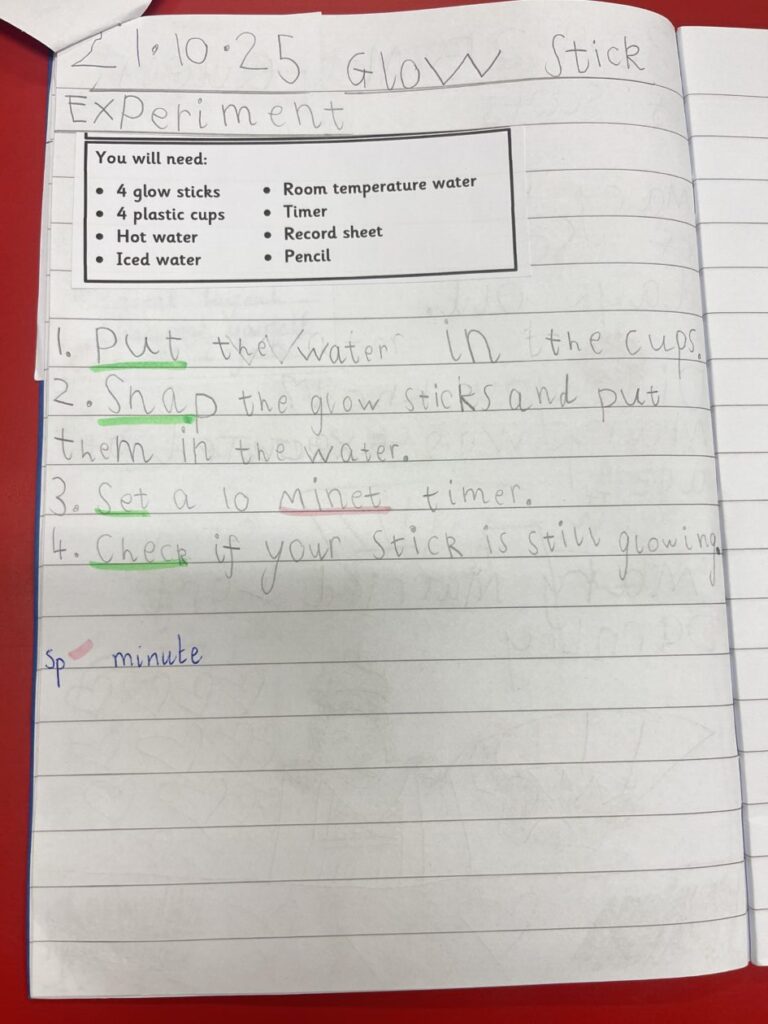 21.10.25 Glow Stick
Experiment
You will need:
• 4 glow sticks
• 4 plastic cups
• Hot water
• Iced water
• Room temperature water
• Timer
• Record sheet
• Pencil
1. Put the water in the cups.
2. Snap the glow sticks and put
them in the water.
3. Set a 10 minet timer.
4. Check if your stick is still glowing.
sp minute